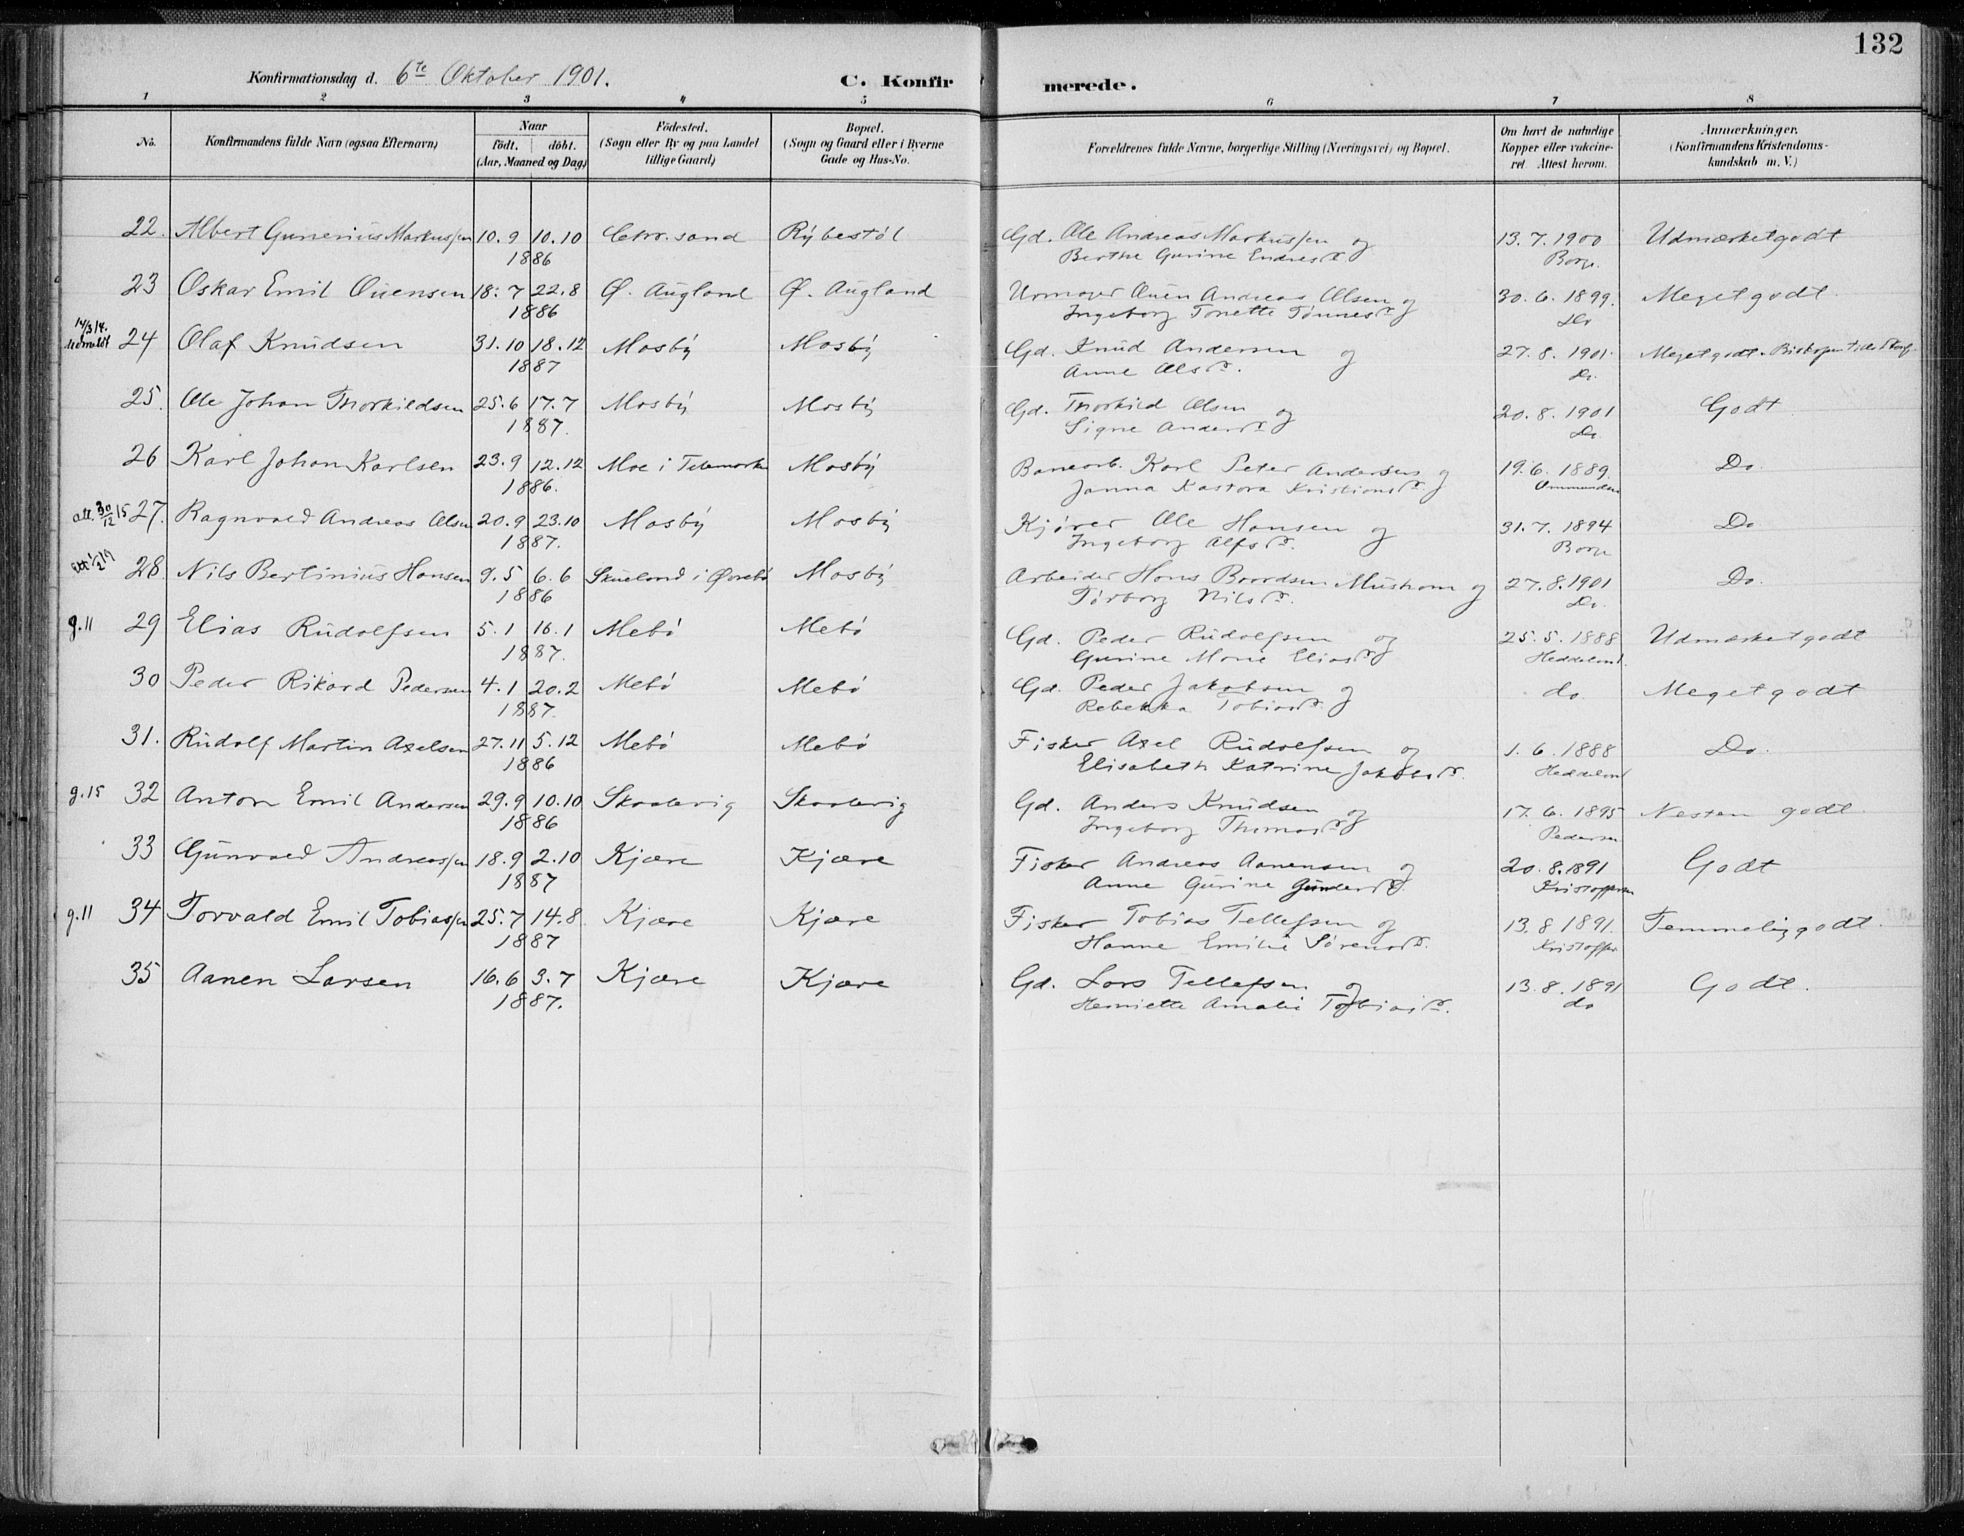 132
Konfirmationsdag d. 6te Oktober 1901. C. Konfirmerede.
1 2 3 4 5 6 7 8
No. Konfirmandens fulde Navn (ogsaa Efternavn) Naar födt. döbt. (Aar, Maaned og Dag) Födested. (Sogn eller By og paa Landet tillige Gaard) Bopæl. (Sogn og Gaard eller i Byerne Gade og Hus-No. Forældrenes fulde Navne, borgerlige Stilling (Næringsvei) og Bopæl. Om havt de naturlige Kopper eller vakcineret. Attest herom. Anmærkninger. (Konfirmandens Kristendomskundskab m. V.)
22. Albert Gunerius Markussen 10.9 10.10 Chr.sand Rybestøl Gd. Ole Andreas Markussen og 13.7.1900 Udmærket godt
1886 Berthe Gurine Endresdr. Borge
23 Oskar Emil Ouensen 18.7 22.8 Ø. Augland Ø. Augland Urmager Ouen Andreas Olsen og 30.6.1899. Meget godt
1886 Ingeborg Tonette Tønnesdr. Do
14/3 14. 24 Olaf Knudsen 31.10 18.12 Mosby Mosby Gd. Knud Andersen og 27.8.1901. Meget godt.
1887 Anne Olsdr. Do.
25. Ole Johan Thorkildsen 25.6 17.7 Mosby Mosby Gd. Thorkild Olsen og 20.8.1901 Godt
1887. Signe Andersdr. Do
26 Karl Johan Karlsen 23.9 12.12 Moe i Telemarken Mosby Banearb. Karl Peter Andersen og 19.6.1889. Do.
1886. Janna Kastora Kristiansdr.
att. 30/12 15 27. Ragnvald Andreas Olsen 20.9 23.10 Mosby Mosby Kjører Ole Hansen og 31.7.1894 Do
1887. Ingeborg Alfsdr. Borge
28. Nils Bertinius Hansen 9.5 6.6 Skueland i Øvrebø Mosby Arbeider Hans Baardsen Mushom og 27.8.1901 Do.
1886 Tørborg Nilsdr. Do.
g.11 29 Elias Rudolfsen 5.1 16.1 Mebø Mebø Gd. Peder Rudolfsen og 25.5.1888 Udmærket godt
1887. Gurine Marie Eliasdr. Heddeland.
30 Peder Rikard Pedersen 4.1 20.2 Mebø Mebø Gd. Peder Jakobsen og do. Meget godt
1887. Rebekka Tobiasdr.
31. Rudolf Martin Axelsen 27.11 5.12 Mebø Mebø Fisker Axel Rudolfsen og 1.6.1888 Do.
1886 Elisabeth Katrine Jakobsdr. Heddeland
g.15 32 Anton Emil Andersen 29.9 10.10 Skaalevig Skaalevig Gd. Anders Knudsen og 17.6.1895 Nesten godt
1886 Ingeborg Thomasdr. Pedersen
33 Gunvald Andreassen 18.9 2.10 Kjære Kjære Fisker Andreas Aanensen og 20.8.1891 Godt
1887 Anne Gurine Gundersdr. Kristoffersen
g.11 34 Torvald Emil Tobiassen 25.7 14.8 Kjære Kjære Fisker Tobias Tellefsen og 13.8 1891. Temmelig godt.
1887 Hanne Emilie Sørensdr. Kristoffer
35 Aanen Larsen 16.6 3.7 Kjære Kjære Gd. Lars Tellefsen og 13.8.1891 Godt.
1887. Henriette Amalie Tobiasdr. do